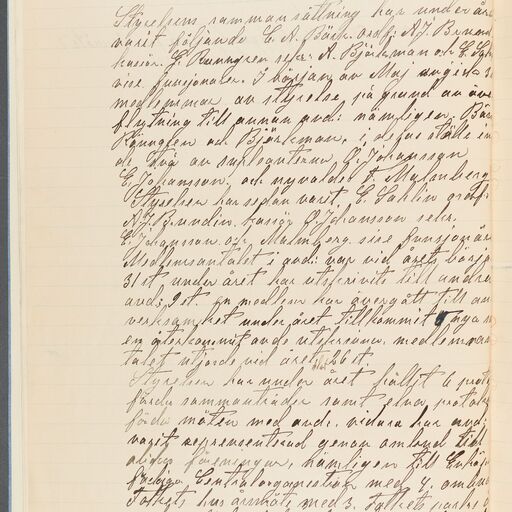 Styrelsens sammansättning har under åre
varit följande E. A. Bäck. ordf: A. J. Brund
kassör. G. Runngren sekr: A. Björkman och E.
vise funsjonärer. I början av Maj avgick 3
medlemmar av styrelse på grund av över
flyttning till annan avd: nämligen. Bäc
och Björkman, i deras ställe in
två av supleanterna, O. Johansson
E. Johansson, och nyvaldes F. Malmberg
Styrelsen har sedan varit. E. Sahlin ordf:
A. J. Brundin kassör O. Johansson sekr.
E. Johansson och Malmberg vise funsjonär
Medlemsantalet i avd: var vid årets börja
31 st under året har utskrivits till andra
avd: 9 st En medlem har övergått till an
verksamhet under året tillkommit 4 nya m
en återkommit av de utskrivna, medlemsan
talet utjorde vid året 26 st.
Styrelsen har under året hållit 6 proto
förda sammanträden samt elva protoko
förda möten med avd. vidare har avd:
varit representerad genom ombud till
olika föreningar, nämligen till Enköp
Centralorganisation med 7. ombu
Folkets hus årsmöte med 3. Folkets parks